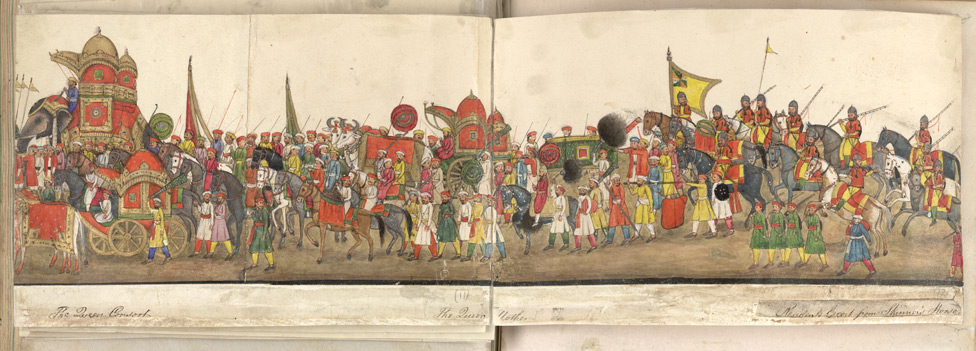 The Queen Consort
(11)
The Queen Mother
Resident's Escort from Skinner's Horse